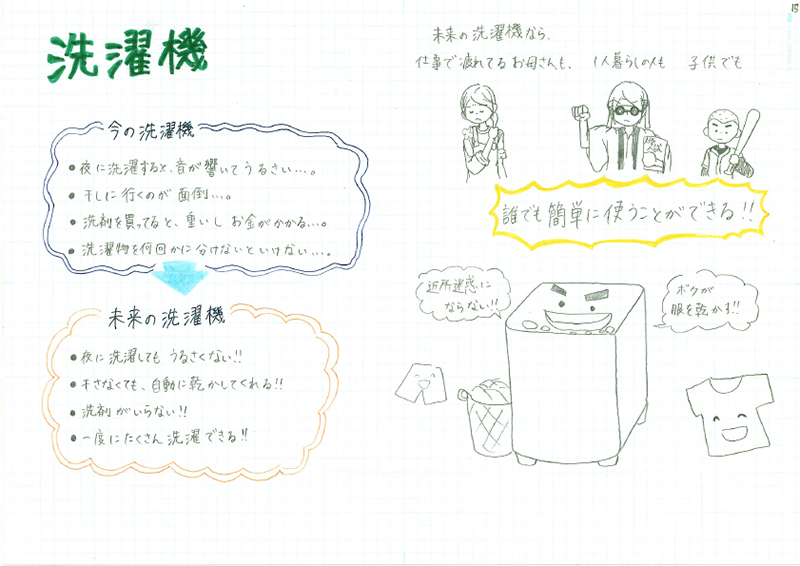 洗濯機
今の洗濯機
●夜に洗濯すると、音が響いてうるさい…。
●干しに行くのが面倒…。
●洗剤を買ってると、重いしお金がかかる…。
●洗濯物を何回かに分けないといけない…。
未来の洗濯機
●夜に洗濯してもうるさくない!!
●干さなくても、自動に乾かしてくれる!!
●洗剤がいらない!!
●一度にたくさん洗濯できる!!
15
未来の洗濯機なら、
仕事で疲れてるお母さんも、 1人暮らしの人も 子供でも
誰でも簡単に使うことができる!!
近所迷惑に
ならない!!
ボクが
服を乾かす!!